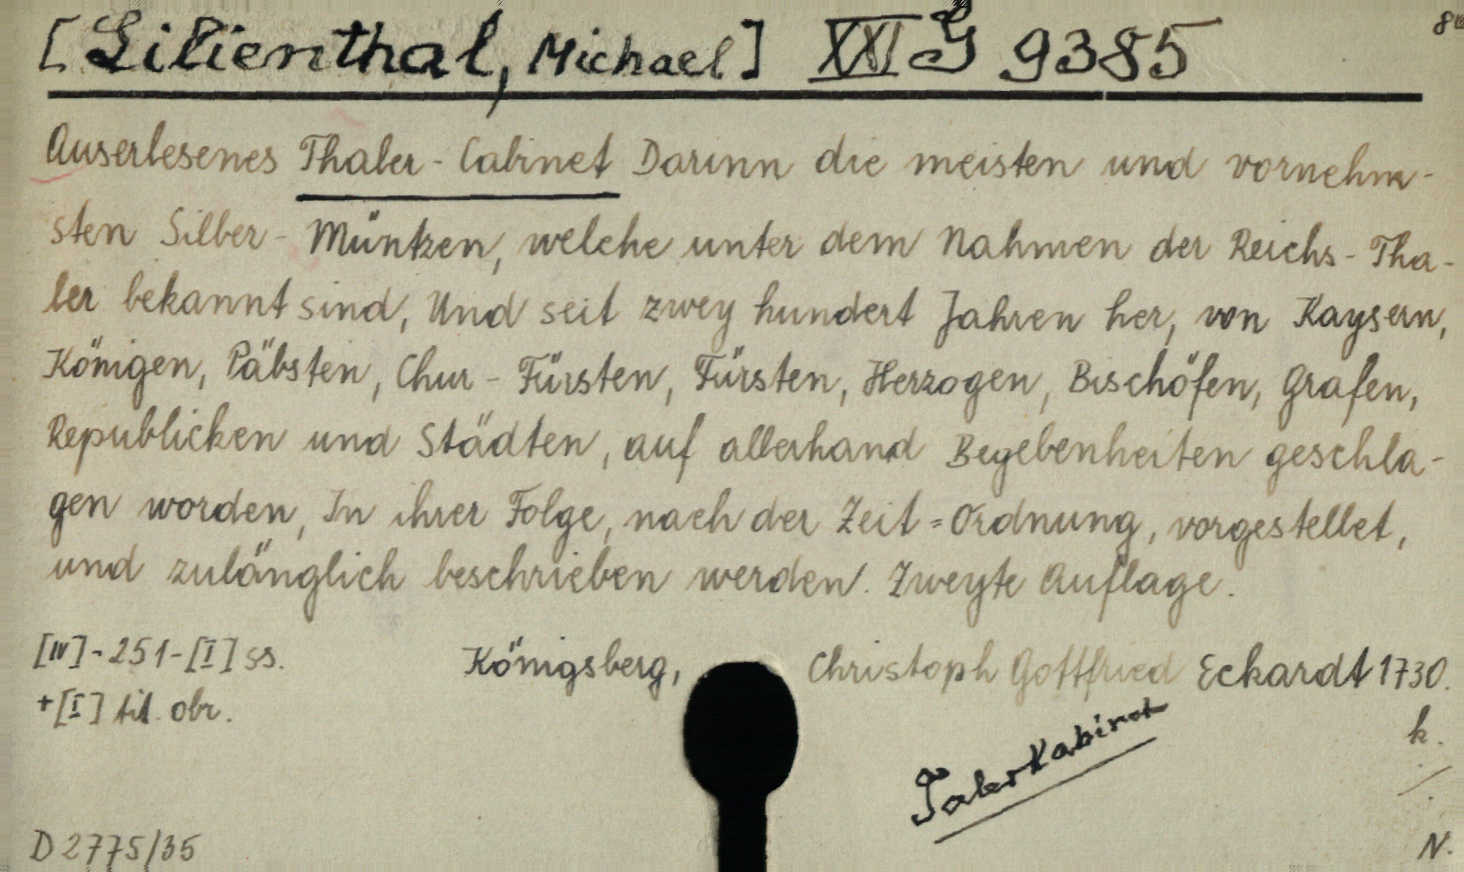 [Lilienthal, Michael] XXI G 9385
Auserlesenes Thaler-Cabinet Darinn die meisten und vornehm-
sten Silber-Müntzen, welche unter dem Nahmen der Reichs-Tha-
ler bekannt sind, Und seit zwey hundert Jahren her, von Kaysern,
Königen, Päbsten, Chur-Fürsten, Fürsten, Herzogen, Bischöfen, Grafen,
Republicken und Städten, auf allerhand Begebenheiten geschla-
gen worden, In ihrer Folge, nach der Zeit=Ordnung, vorgestellet,
und zulänglich beschrieben werden. Zweyte Auflage.
[IV]-251-[I] ss. Königsberg, Christoph Gottfried Eckardt 1730.
+[I] tit. obr.
k.
Taler Kabinet
D 2775/35
N.